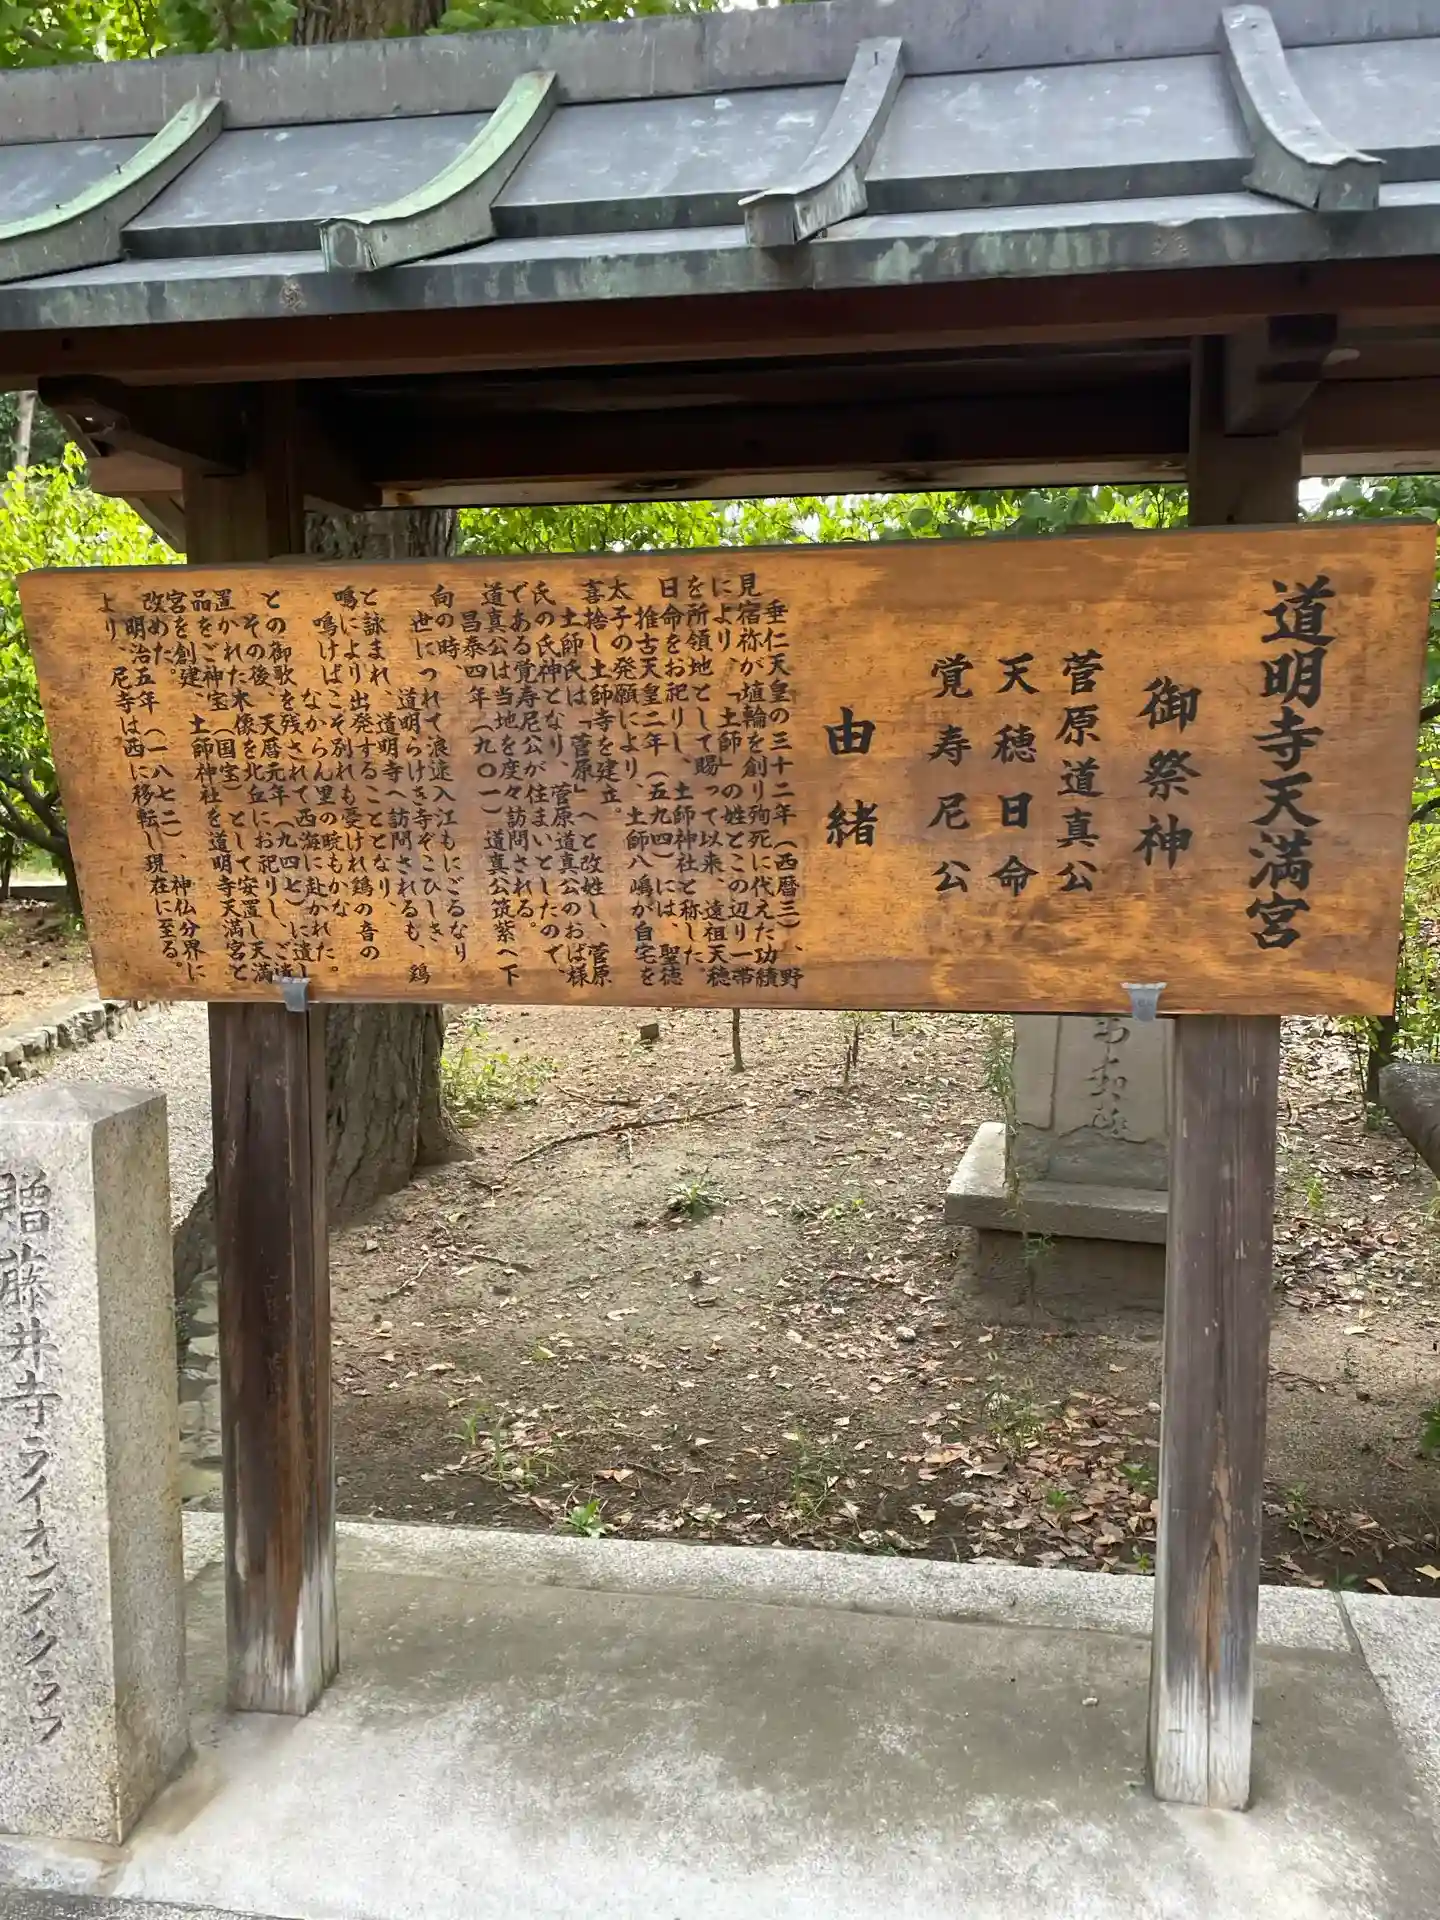 道明寺天満宮
御祭神
菅原道真公
天穂日命
覚寿尼公
由緒
垂仁天皇の三十二年（西暦三）、野
見宿祢が埴輪を創り殉死に代えた功績
により、「土師」の姓とこの辺り一帯
を所領地として賜って以来、遠祖天穂
日命をお祀りし、土師神社と称した。
推古天皇二年（五九四）には、聖徳
太子の発願により、土師八嶋が自宅を
喜捨し土師寺を建立。
土師氏は「菅原」へと改姓し、菅原
氏の氏神となり、菅原道真公のおば様
である覚寿尼公が住まいとしたので、
道真公は当地を度々訪問される。
昌泰四年（九〇一）道真公筑紫へ下
向の時、
世につれて浪速入江もにごるなり
道明らけき寺ぞこひしき
と詠まれ、道明寺へ訪問されるも、鶏
鳴により出発することとなり、
鳴けばこそ別れも憂けれ鶏の音の
なからん里の暁もかな
との御歌を残されて西海に赴かれた。
その後、天暦元年（九四七）に遺し
置かれた木像を北丘にお祀りし、ご遺
品をご神宝（国宝）として安置し天満
宮を創建、土師神社を道明寺天満宮と
改めた。
明治五年（一八七二）、神仏分界に
より、尼寺は西に移転し現在に至る。
贈藤井寺ライオンズクラブ